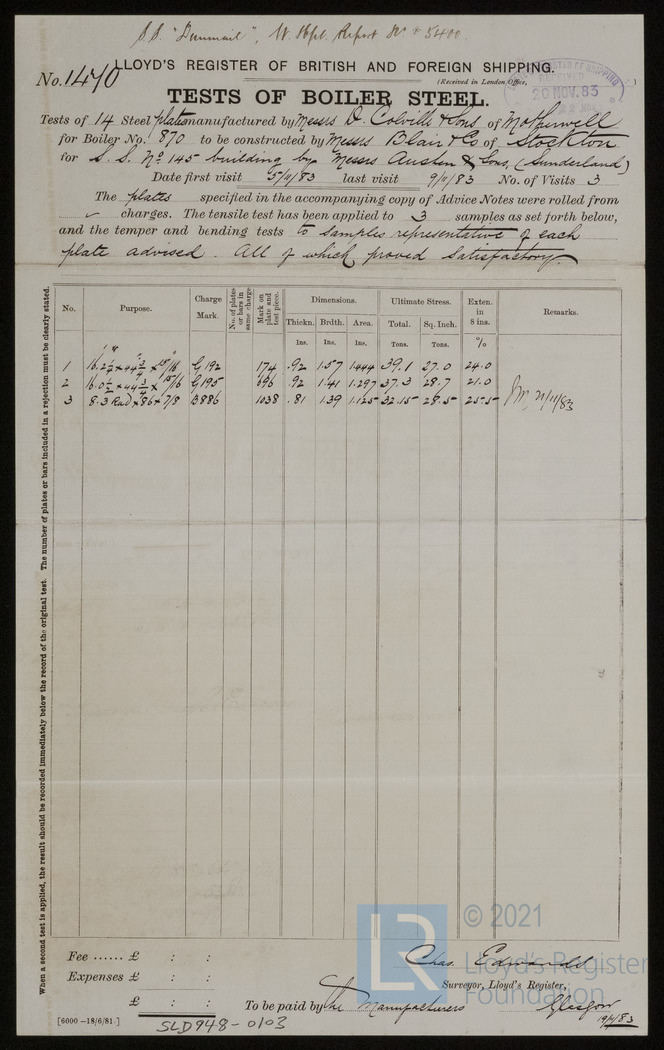 S.S. "Dunmail", W. Hpl. Report No 5400
LLOYD'S REGISTER OF BRITISH AND FOREIGN SHIPPING.
No. 1470
(Received in London Office,
20 NOV. 83
TESTS OF BOILER STEEL.
Tests of 14 Steel plates manufactured by Messrs D. Colville & Sons of Motherwell
for Boiler No. 870 to be constructed by Messrs Blair & Co of Stockton
for S.S. No 145 building by Messrs Austin & Sons, (Sunderland)
Date first visit 5/11/83 last visit 9/11/83 No. of Visits 3
The plates specified in the accompanying copy of Advice Notes were rolled from
charges. The tensile test has been applied to 3 samples as set forth below,
and the temper and bending tests to samples representative of each
plate advised. All of which proved satisfactory.
No. Purpose. Charge Mark. No. of plates or bars in same charge Mark on plate and test piece. Dimensions. Ultimate Stress. Exten. in 8 ins. Remarks.
Thickn. Brdth. Area. Total. Sq. Inch.
Ins. Ins. Ins. Tons. Tons. %
1 16.2¼ x 44¾ x 15/16 G192 174 .92 1.57 1.444 39.1 27.0 24.0
2 16.0½ x 44¾ x 15/16 G195 696 .92 1.41 1.297 37.3 28.7 21.0
3 8.3 Rad x 86 x 7/8 B886 1038 .81 1.39 1.125 32.15 28.5 25.5 21/11/83
When a second test is applied, the result should be recorded immediately below the record of the original test. The number of plates or bars included in a rejection must be clearly stated.
Fee ...... £ : :
Expenses £ : :
£ : :
Chas. Edwards
Surveyor, Lloyd's Register,
To be paid by the Manufacturers Glasgow
19/11/83
[6000 -18/6/81.]
SLD948-0103
LR
© 2021
Lloyd's Register
Foundation